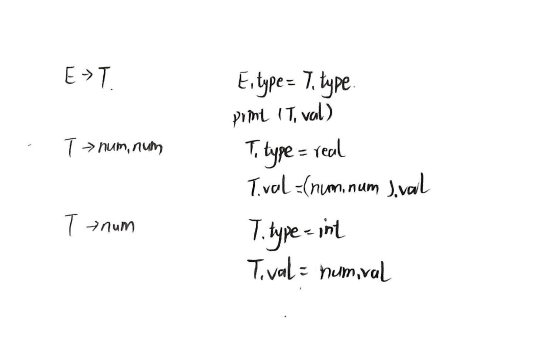 E → T. E.type = T.type.
print (T.val)
T → num.num T.type = real
T.val = (num.num).val
T → num T.type = int
T.val = num.val